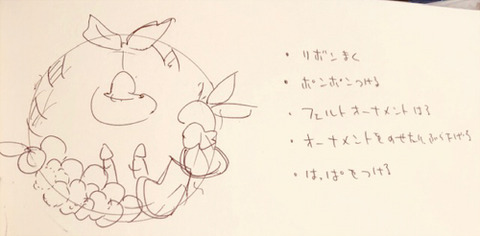 ・リボンまく
・ポンポンつける
・フェルトオーナメントはる
・オーナメントをのせたり
・はっぱをつける